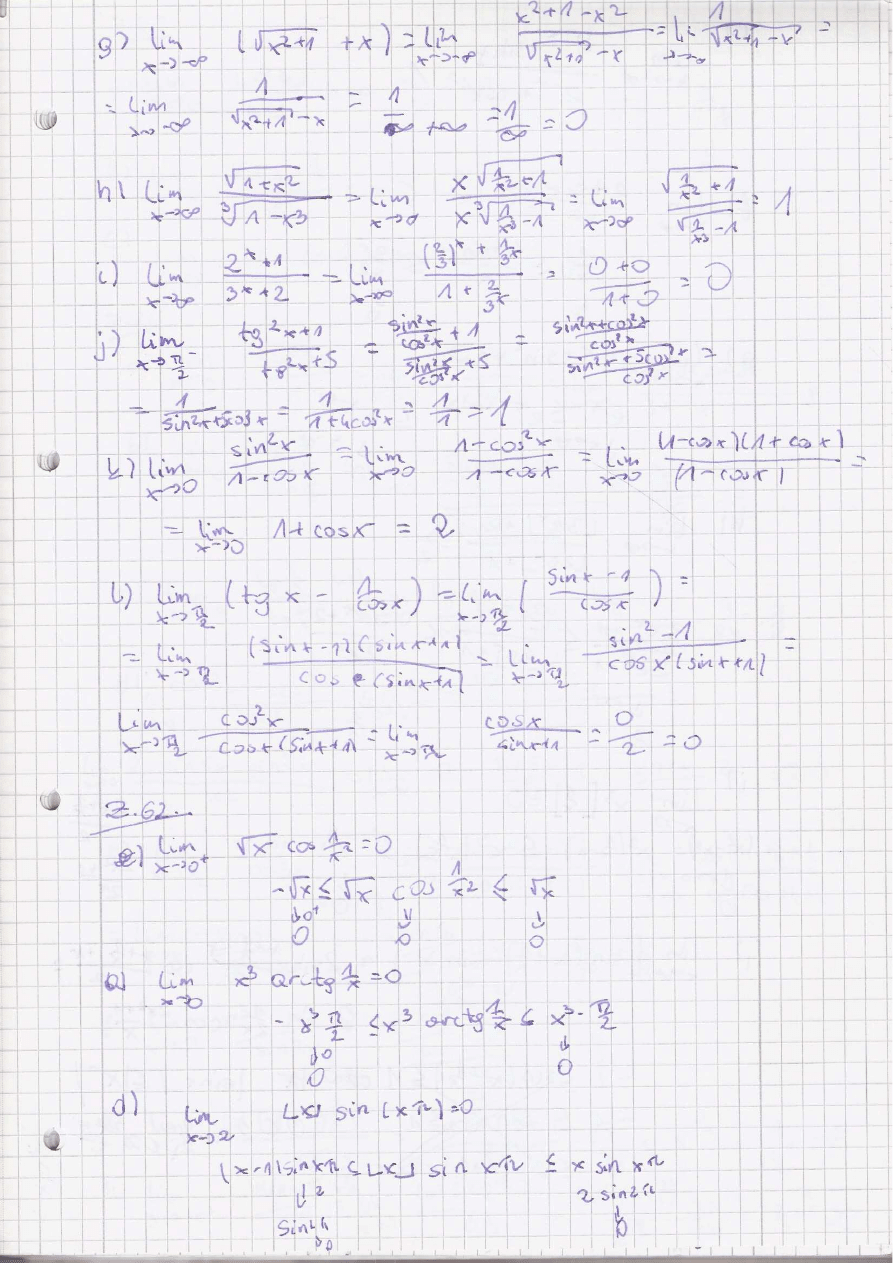 g) lim x→-∞ (√(x²+1) + x) = lim x→-∞ (x²+1-x²)/(√(x²+1) - x) = lim x→-∞ 1/(√(x²+1) - x) =
= lim x→-∞ 1/(√(x²+1) - x) = 1/(∞+∞) = 1/∞ = 0
h) lim x→∞ √(1+x²)/∛(1-x3) = lim x→∞ (x √(1/x² + 1))/(x ∛(1/x3 - 1)) = lim x→∞ √(1/x² + 1)/√(1/x3 - 1) = 1
i) lim x→∞ (2ˣ+1)/(3ˣ+2) = lim x→∞ ((2/3)ˣ + 1/3ˣ)/(1 + 2/3ˣ) = (0+0)/(1+0) = 0
j) lim x→π/2⁻ (tg²x+1)/(tg²x+5) = (sin²x/cos²x + 1)/(sin²x/cos²x + 5) = ((sin²x+cos²x)/cos²x)/((sin²x+5cos²x)/cos²x) =
= 1/(sin²x+5cos²x) = 1/(1+4cos²x) = 1/1 = 1
k) lim x→0 sin²x/(1-cosx) = lim x→0 (1-cos²x)/(1-cosx) = lim x→0 (1-cosx)(1+cosx)/(1-cosx) =
= lim x→0 1+cosx = 2
l) lim x→π/2 (tg x - 1/cosx) = lim x→π/2 ((sinx-1)/cosx) =
= lim x→π/2 (sinx-1)(sinx+1)/(cos (sinx+1)) = lim x→π/2 (sin²-1)/(cosx(sinx+1)) =
lim x→π/2 cos²x/(cosx(sinx+1)) = lim x→π/2 cosx/(sinx+1) = 0/2 = 0
Z.62.
lim x→0⁺ √x cos 1/x² = 0
-√x ≤ √x cos 1/x² ≤ √x
↓0⁺ ↓ ↓
0 0 0
lim x→0 x³ arctg 1/x = 0
- x³ π/2 ≤ x³ arctg 1/x ≤ x³ · π/2
↓0 ↓
0 0
d) lim x→2 ⌊x⌋ sin(xπ) = 0
(x-1) sin xπ ≤ ⌊x⌋ sin xπ ≤ x sin xπ
↓2 2 sin2π
↓
0